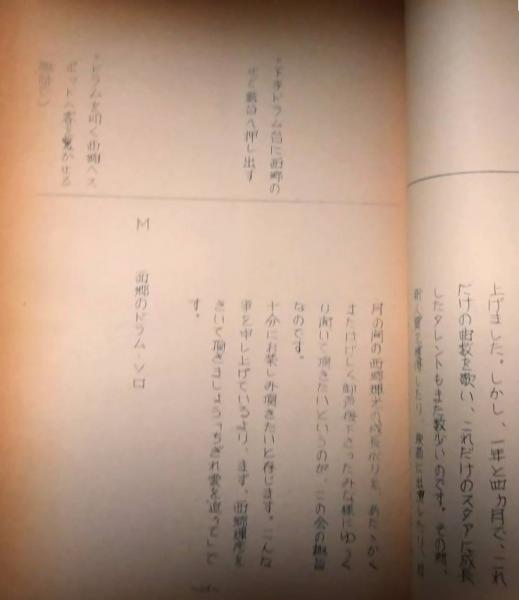 上げました。しかし、一年と四ヵ月で、これ
だけの曲数を歌い、これだけのスタアに成長
したタレントもまた数少いのです。その間、
新人賞を獲得したり、映画に出演したり、
月の間の西郷輝彦の成長ぶりを、あたゝかく
またはげしく御声援下さったみな様にゆっく
り聞いて頂きたいというのが、この会の趣旨
なのです。
十分にお楽しみ頂きたいと存じます。こんな
事を申し上げているより、まず、西郷輝彦を
きいて頂きましょう「ちぎれ雲を追って」で
す。
下手ドラム台に西郷の
せて舞台へ押し出す
M 西郷のドラム・ソロ
ドラムを叩く西郷へス
ポット